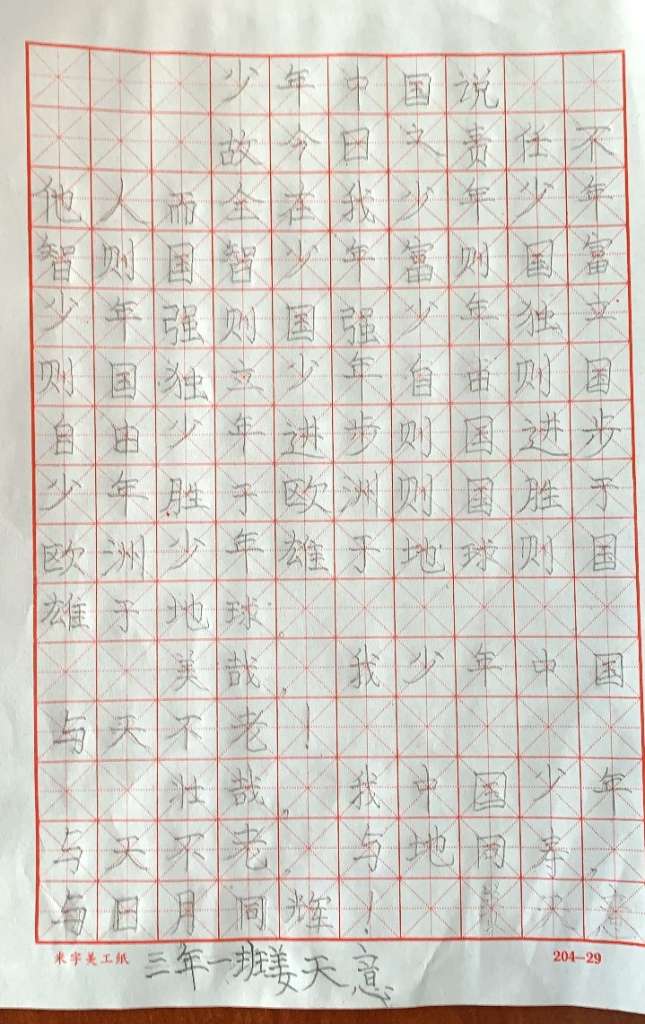 少年中国说
故今日之责任不
他人而全在我少年少年
智则国智少年富则国富
少年强则国强少年独立
则国独立少年自由则国
自由少年进步则国进步
少年胜于欧洲则国胜于
欧洲少年雄于地球则国
雄于地球。
美哉。我少年中国
与天不老！
壮哉。我中国少年
与天不老。与地同寿。
与日月同辉！姜天意
米字美工纸 204—29
三年一班姜天意